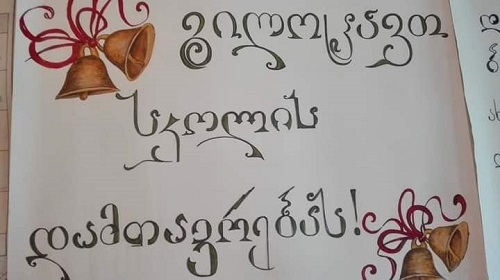 გილოცავთ
სკოლის
დამთავრებას!